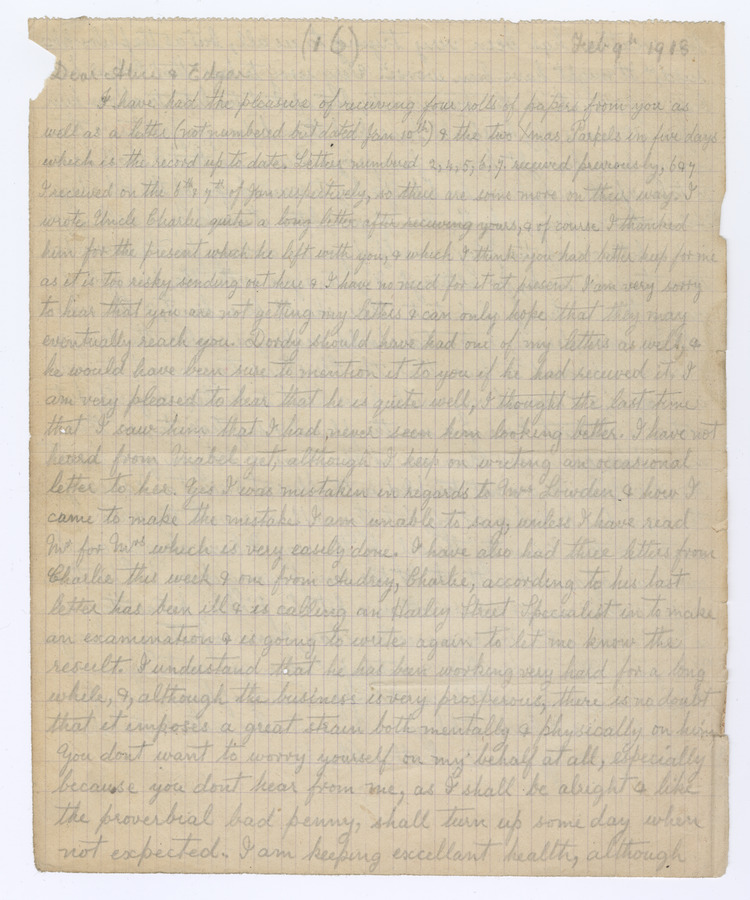 (16) Feb 9th 1918
Dear Alice & Edgar
I have had the pleasure of receiving four rolls of papers from you as
well as a letter (not numbered but dated Jan 10th) & the two Xmas Parcels in five days
which is the record up to date. Letters numbered 2, 4, 5, 6, 7, received previously, 6 & 7
I received on the 6th & 7th of Jan respectively, so there are some more on their way. I
wrote Uncle Charlie quite a long letter after receiving yours, & of course I thanked
him for the present which he left with you, & which I think you had better keep for me
as it is too risky sending out here & I have no need for it at present. I am very sorry
to hear that you are not getting my letters & can only hope that they may
eventually reach you. Dordy should have had one of my letters as well, &
he would have been sure to mention it to you if he had received it, I
am very pleased to hear that he is quite well, I thought the last time
that I saw him that I had never seen him looking better. I have not
heard from Mabel yet, although I keep on writing an occasional
letter to her. Yes I was mistaken in regards to Mrs Lowden & how I
came to make the mistake I am unable to say, unless I have read
Mr for Mrs which is very easely done. I have also had three letters from
Charlie this week & one from Audrey, Charlie, according to his last
letter has been ill & is calling an Harley Street Specialest in to make
an examination & is going to write again to let me know the
result. I understand that he has been working very hard for a long
while, &, although the business is very prosperous, there is no doubt
that it imposes a great strain both mentally & physically on him
You dont want to worry yourself on my behalf at all, especially
because you dont hear from me, as I shall be alright & like
the proverbial bad penny, shall turn up some day when
not expected. I am keeping excellant health, although